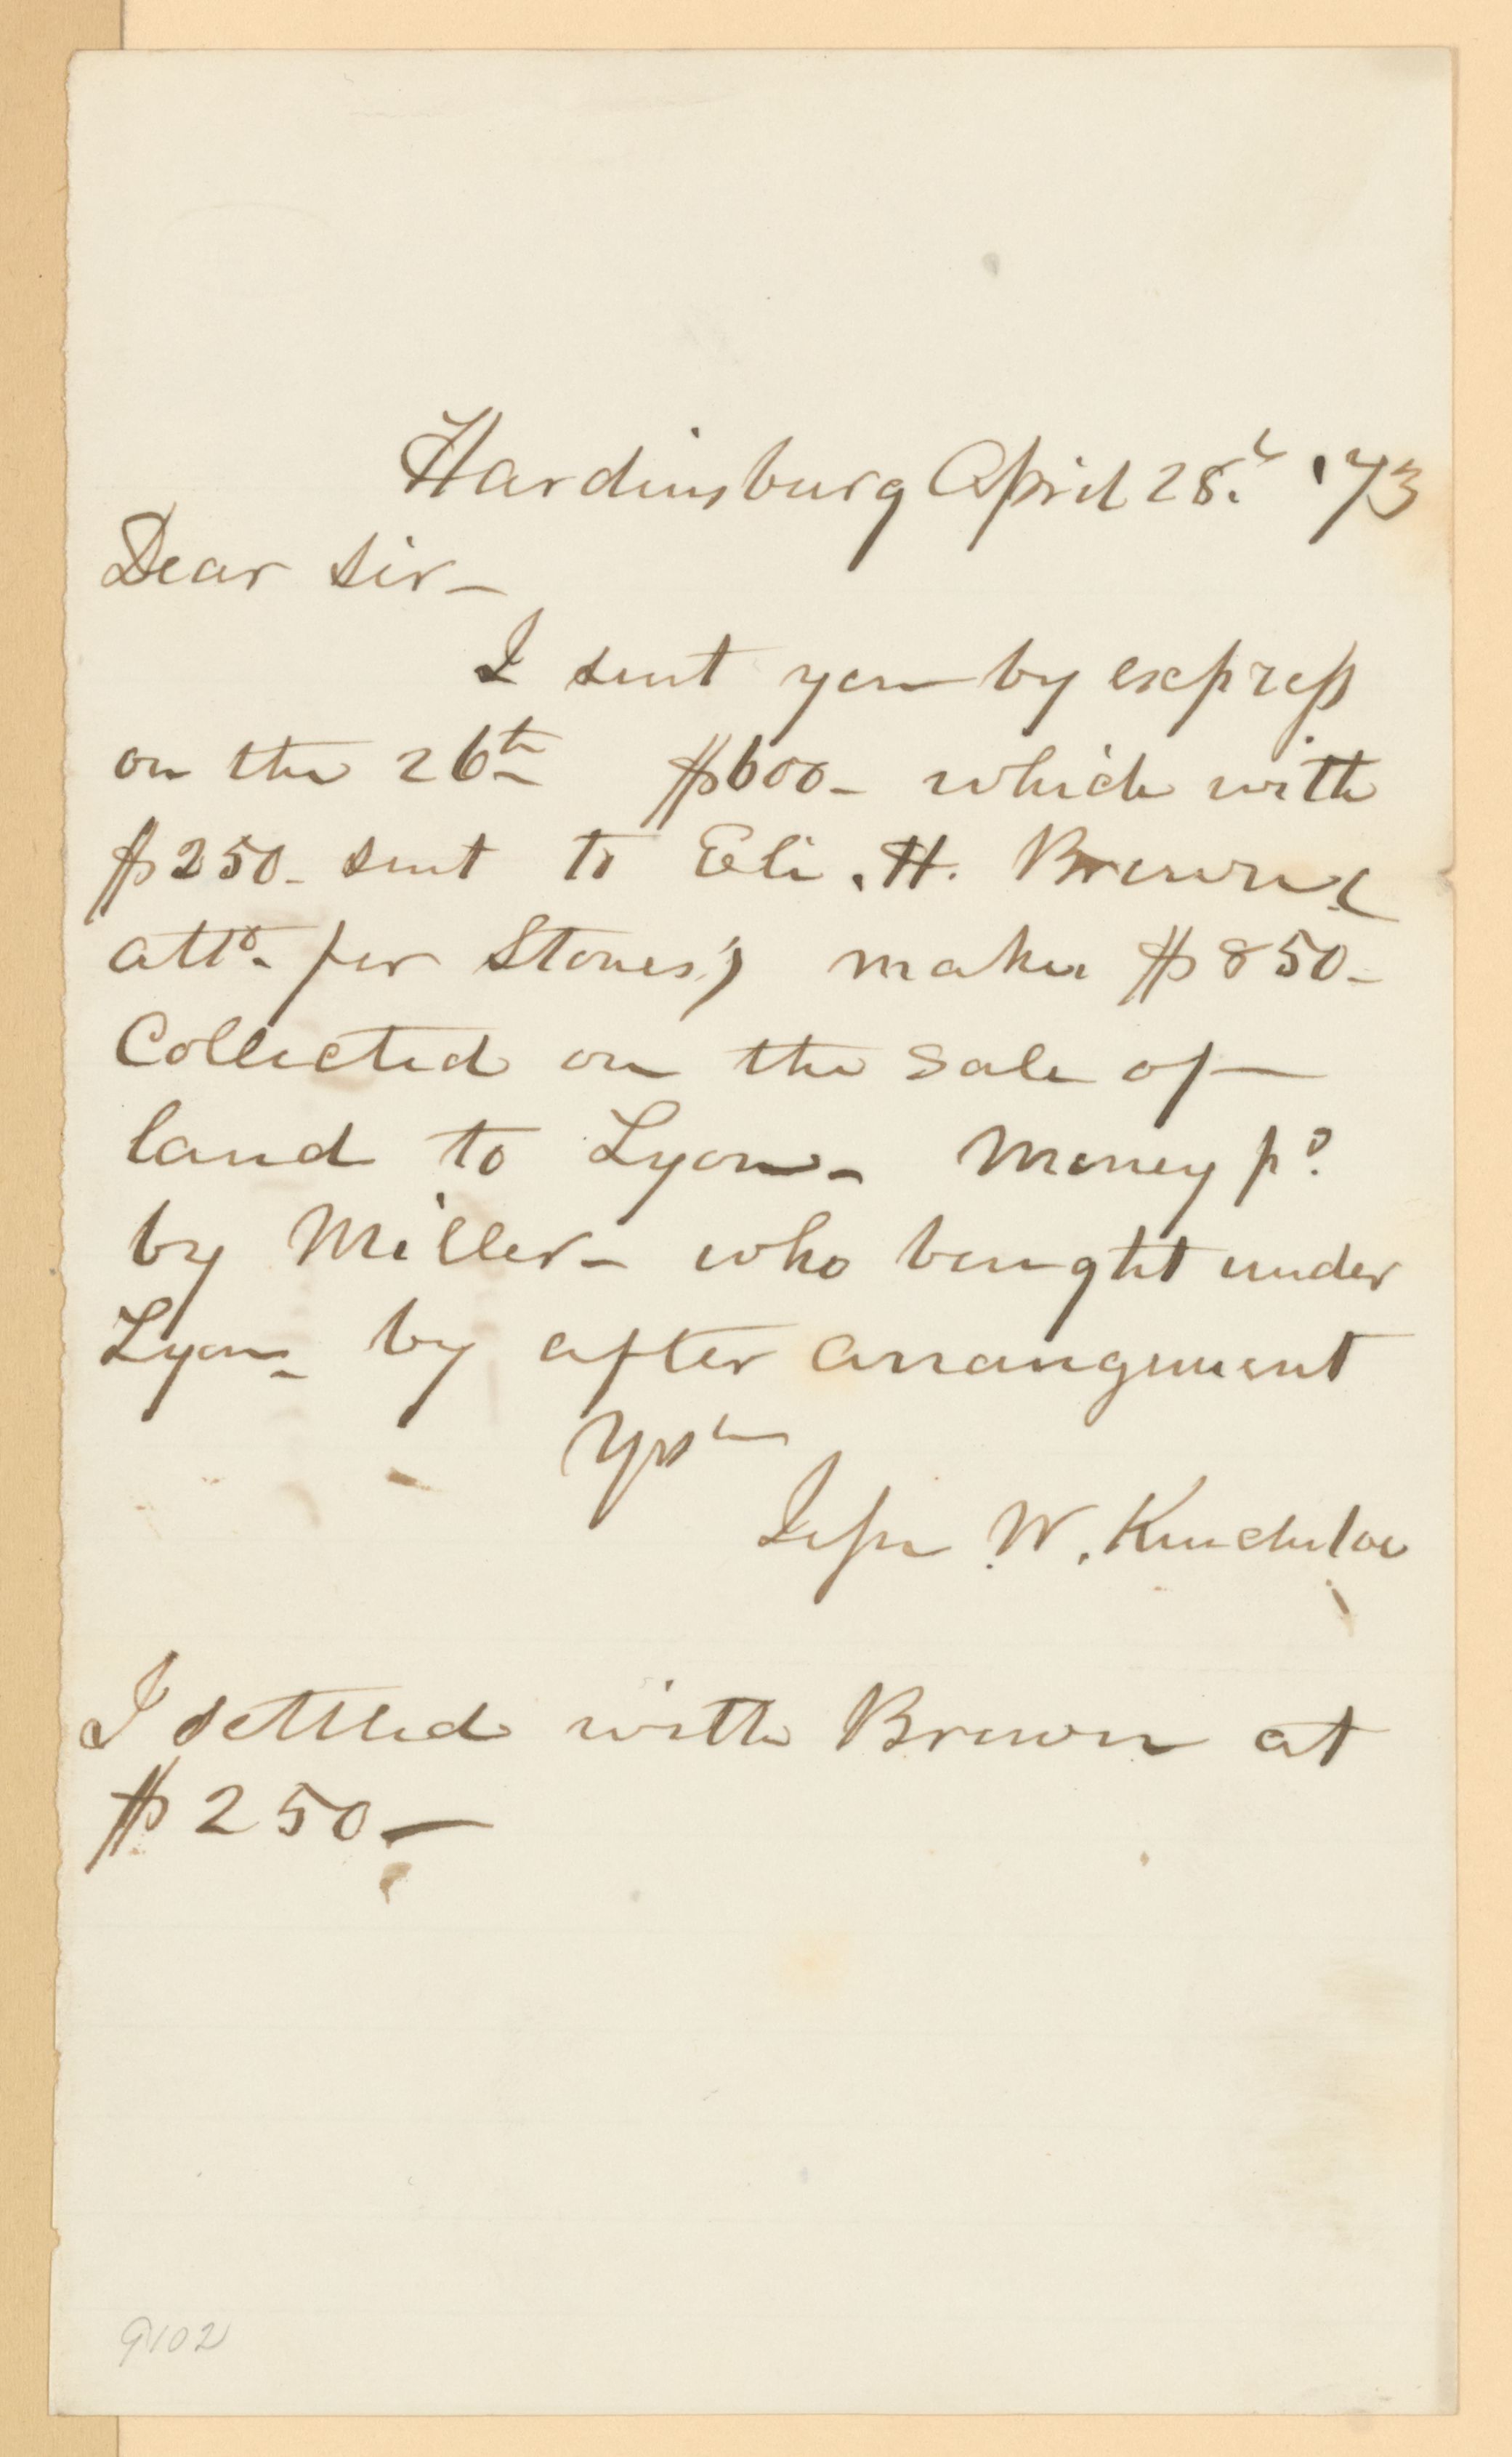 Hardinsburg April 28.th '73
Dear Sir-
I sent you by express
on the 26th $600- which with
$250- sent to Eli. H. Brown (
atto. for Stones) makes $850-
Collected on the sale of
land to Lyon- Money pd.
by Miller- who bought under
Lyon- by after arrangement
Yrs &c
Jesse W. Kincheloe
I settled with Brown at
$250-
9102